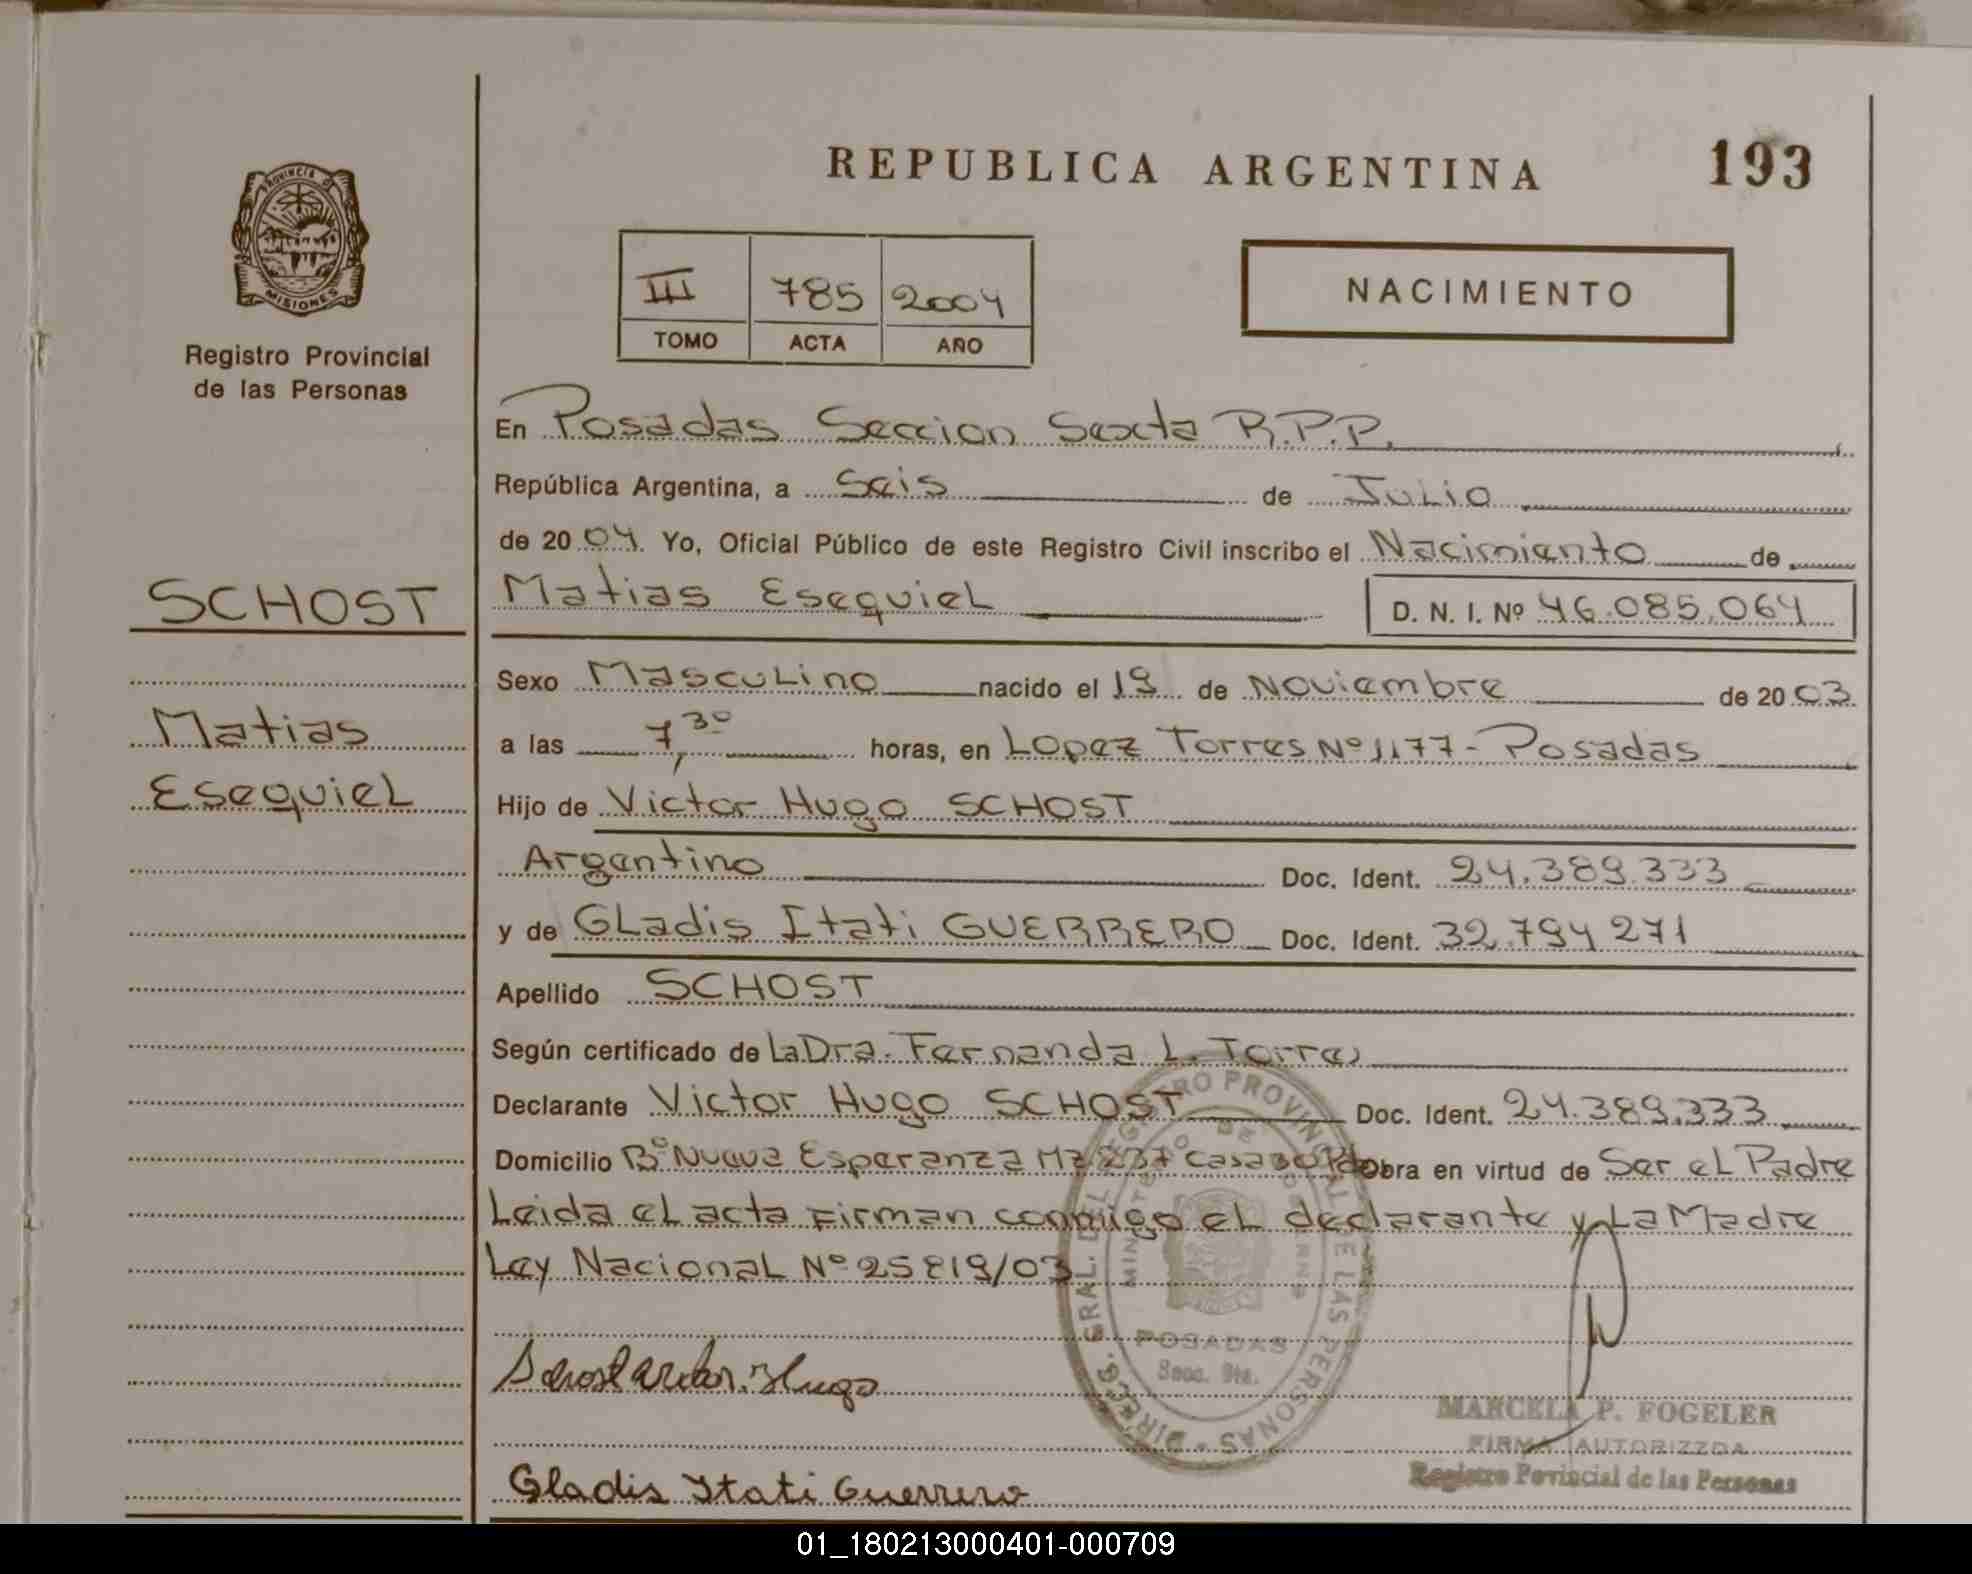 REPUBLICA ARGENTINA
193
PROVINCIA DE
MISIONES
Registro Provincial
de las Personas
III 785 2004
TOMO ACTA AÑO
NACIMIENTO
En Posadas Seccion Sexta R.P.P.
República Argentina, a Seis de Julio
de 2004. Yo, Oficial Público de este Registro Civil inscribo el Nacimiento de
SCHOST
Matias Esequiel D. N. I. Nº 46.085.064
Sexo Masculino nacido el 19 de Noviembre de 2003
Matias
a las 7,30 horas, en Lopez Torres Nº 1177 - Posadas
Esequiel
Hijo de Victor Hugo SCHOST
Argentino Doc. Ident. 24.389.333
y de Gladis Itati GUERRERO Doc. Ident. 32.794 271
Apellido SCHOST
Según certificado de La Dra. Fernanda L. Torres
Declarante Victor Hugo SCHOST Doc. Ident. 24.389.333
Domicilio Bº Nueva Esperanza Mz 237 casa Obra en virtud de Ser el Padre
Leida el acta firman conmigo el declarante y La Madre
Ley Nacional Nº 25819/03
DIREC. GRAL. DEL REGISTRO PROVINCIAL DE LAS PERSONAS
MINISTERIO DE GOBIERNO
POSADAS
Secc. 6ta.
Schost Victor Hugo
MARCELA P. FOGELER
FIRMA AUTORIZZDA
Registro Povincial de las Personas
Gladis Itati Guerrero
01_180213000401-000709